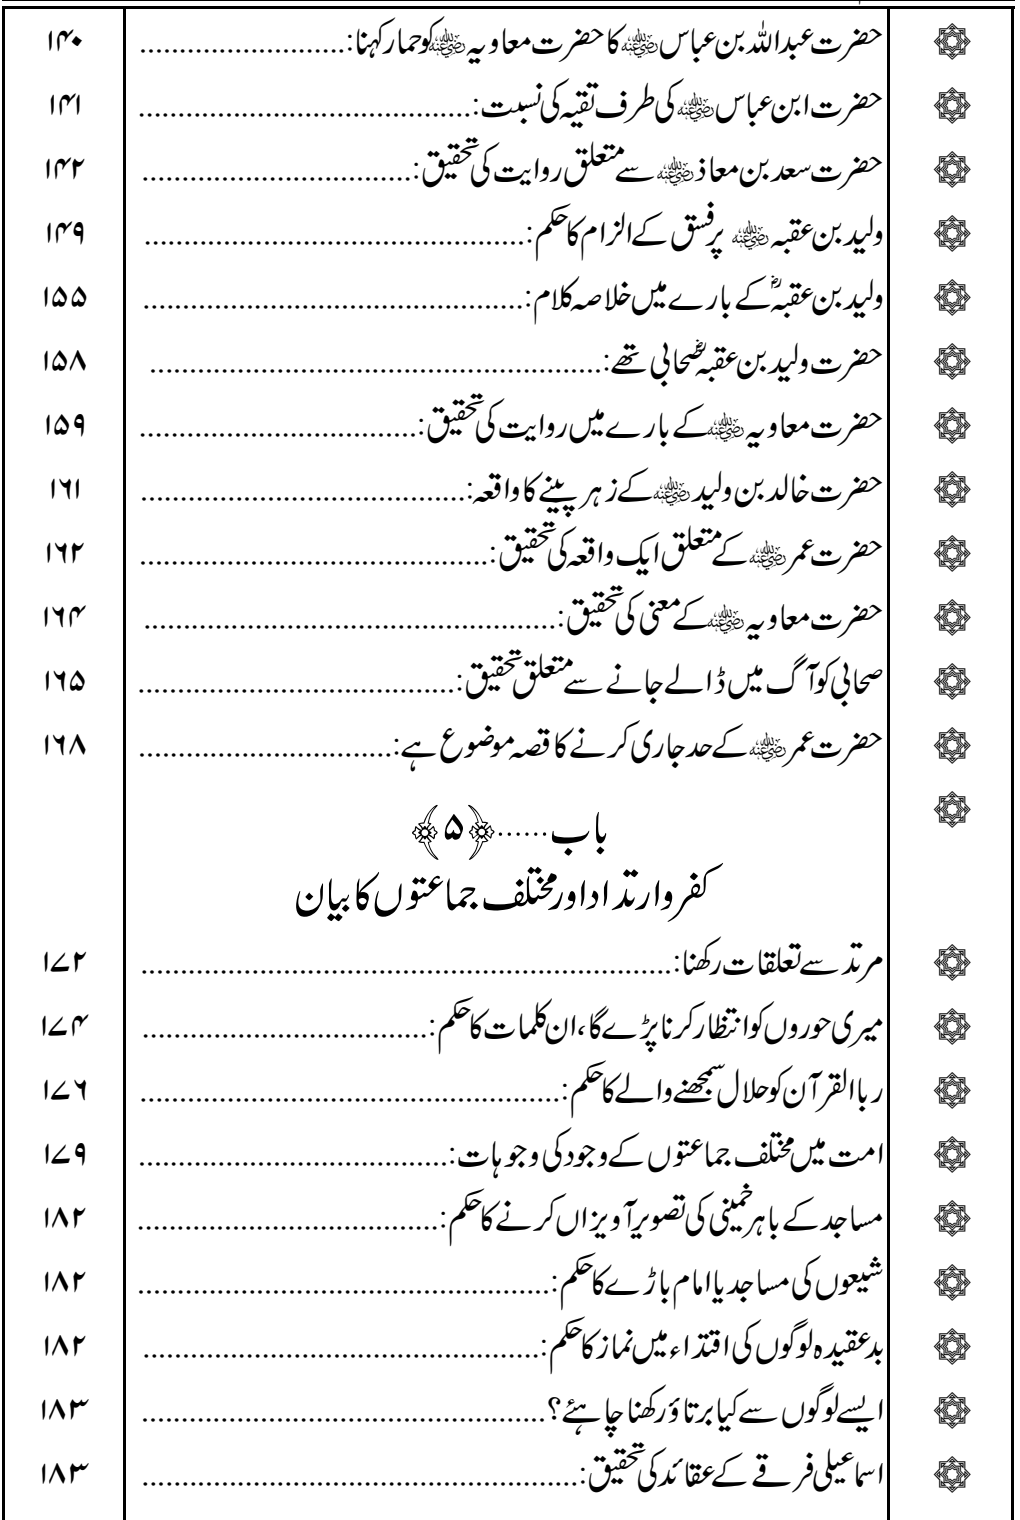 حضرت عبداللہ بن عباس رضی اللہ عنہ کا حضرت معاویہ رضی اللہ عنہ کو حمار کہنا: ۱۴۰
حضرت ابن عباس رضی اللہ عنہ کی طرف تقیہ کی نسبت: ۱۴۱
حضرت سعد بن معاذ رضی اللہ عنہ سے متعلق روایت کی تحقیق: ۱۴۲
ولید بن عقبہ رضی اللہ عنہ پر فسق کے الزام کا حکم: ۱۴۹
ولید بن عقبہؓ کے بارے میں خلاصہ کلام: ۱۵۵
حضرت ولید بن عقبہؓ صحابی تھے: ۱۵۸
حضرت معاویہ رضی اللہ عنہ کے بارے میں روایت کی تحقیق: ۱۵۹
حضرت خالد بن ولید رضی اللہ عنہ کے زہر پینے کا واقعہ: ۱۶۱
حضرت عمر رضی اللہ عنہ کے متعلق ایک واقعہ کی تحقیق: ۱۶۲
حضرت معاویہ رضی اللہ عنہ کے معنی کی تحقیق: ۱۶۴
صحابی کو آگ میں ڈالے جانے سے متعلق تحقیق: ۱۶۵
حضرت عمر رضی اللہ عنہ کے حد جاری کرنے کا قصہ موضوع ہے: ۱۶۸
باب ......﴿۵﴾
کفر وارتداد اور مختلف جماعتوں کا بیان
مرتد سے تعلقات رکھنا: ۱۷۲
میری حوروں کو انتظار کرنا پڑے گا، ان کلمات کا حکم: ۱۷۴
ربا القرآن کو حلال سمجھنے والے کا حکم: ۱۷۶
امت میں مختلف جماعتوں کے وجود کی وجوہات: ۱۷۹
مساجد کے باہر خمینی کی تصویر آویزاں کرنے کا حکم: ۱۸۲
شیعوں کی مساجد یا امام باڑے کا حکم: ۱۸۲
بدعقیدہ لوگوں کی اقتداء میں نماز کا حکم: ۱۸۲
ایسے لوگوں سے کیا برتاؤ رکھنا چاہئے؟ ۱۸۳
اسماعیلی فرقے کے عقائد کی تحقیق: ۱۸۳